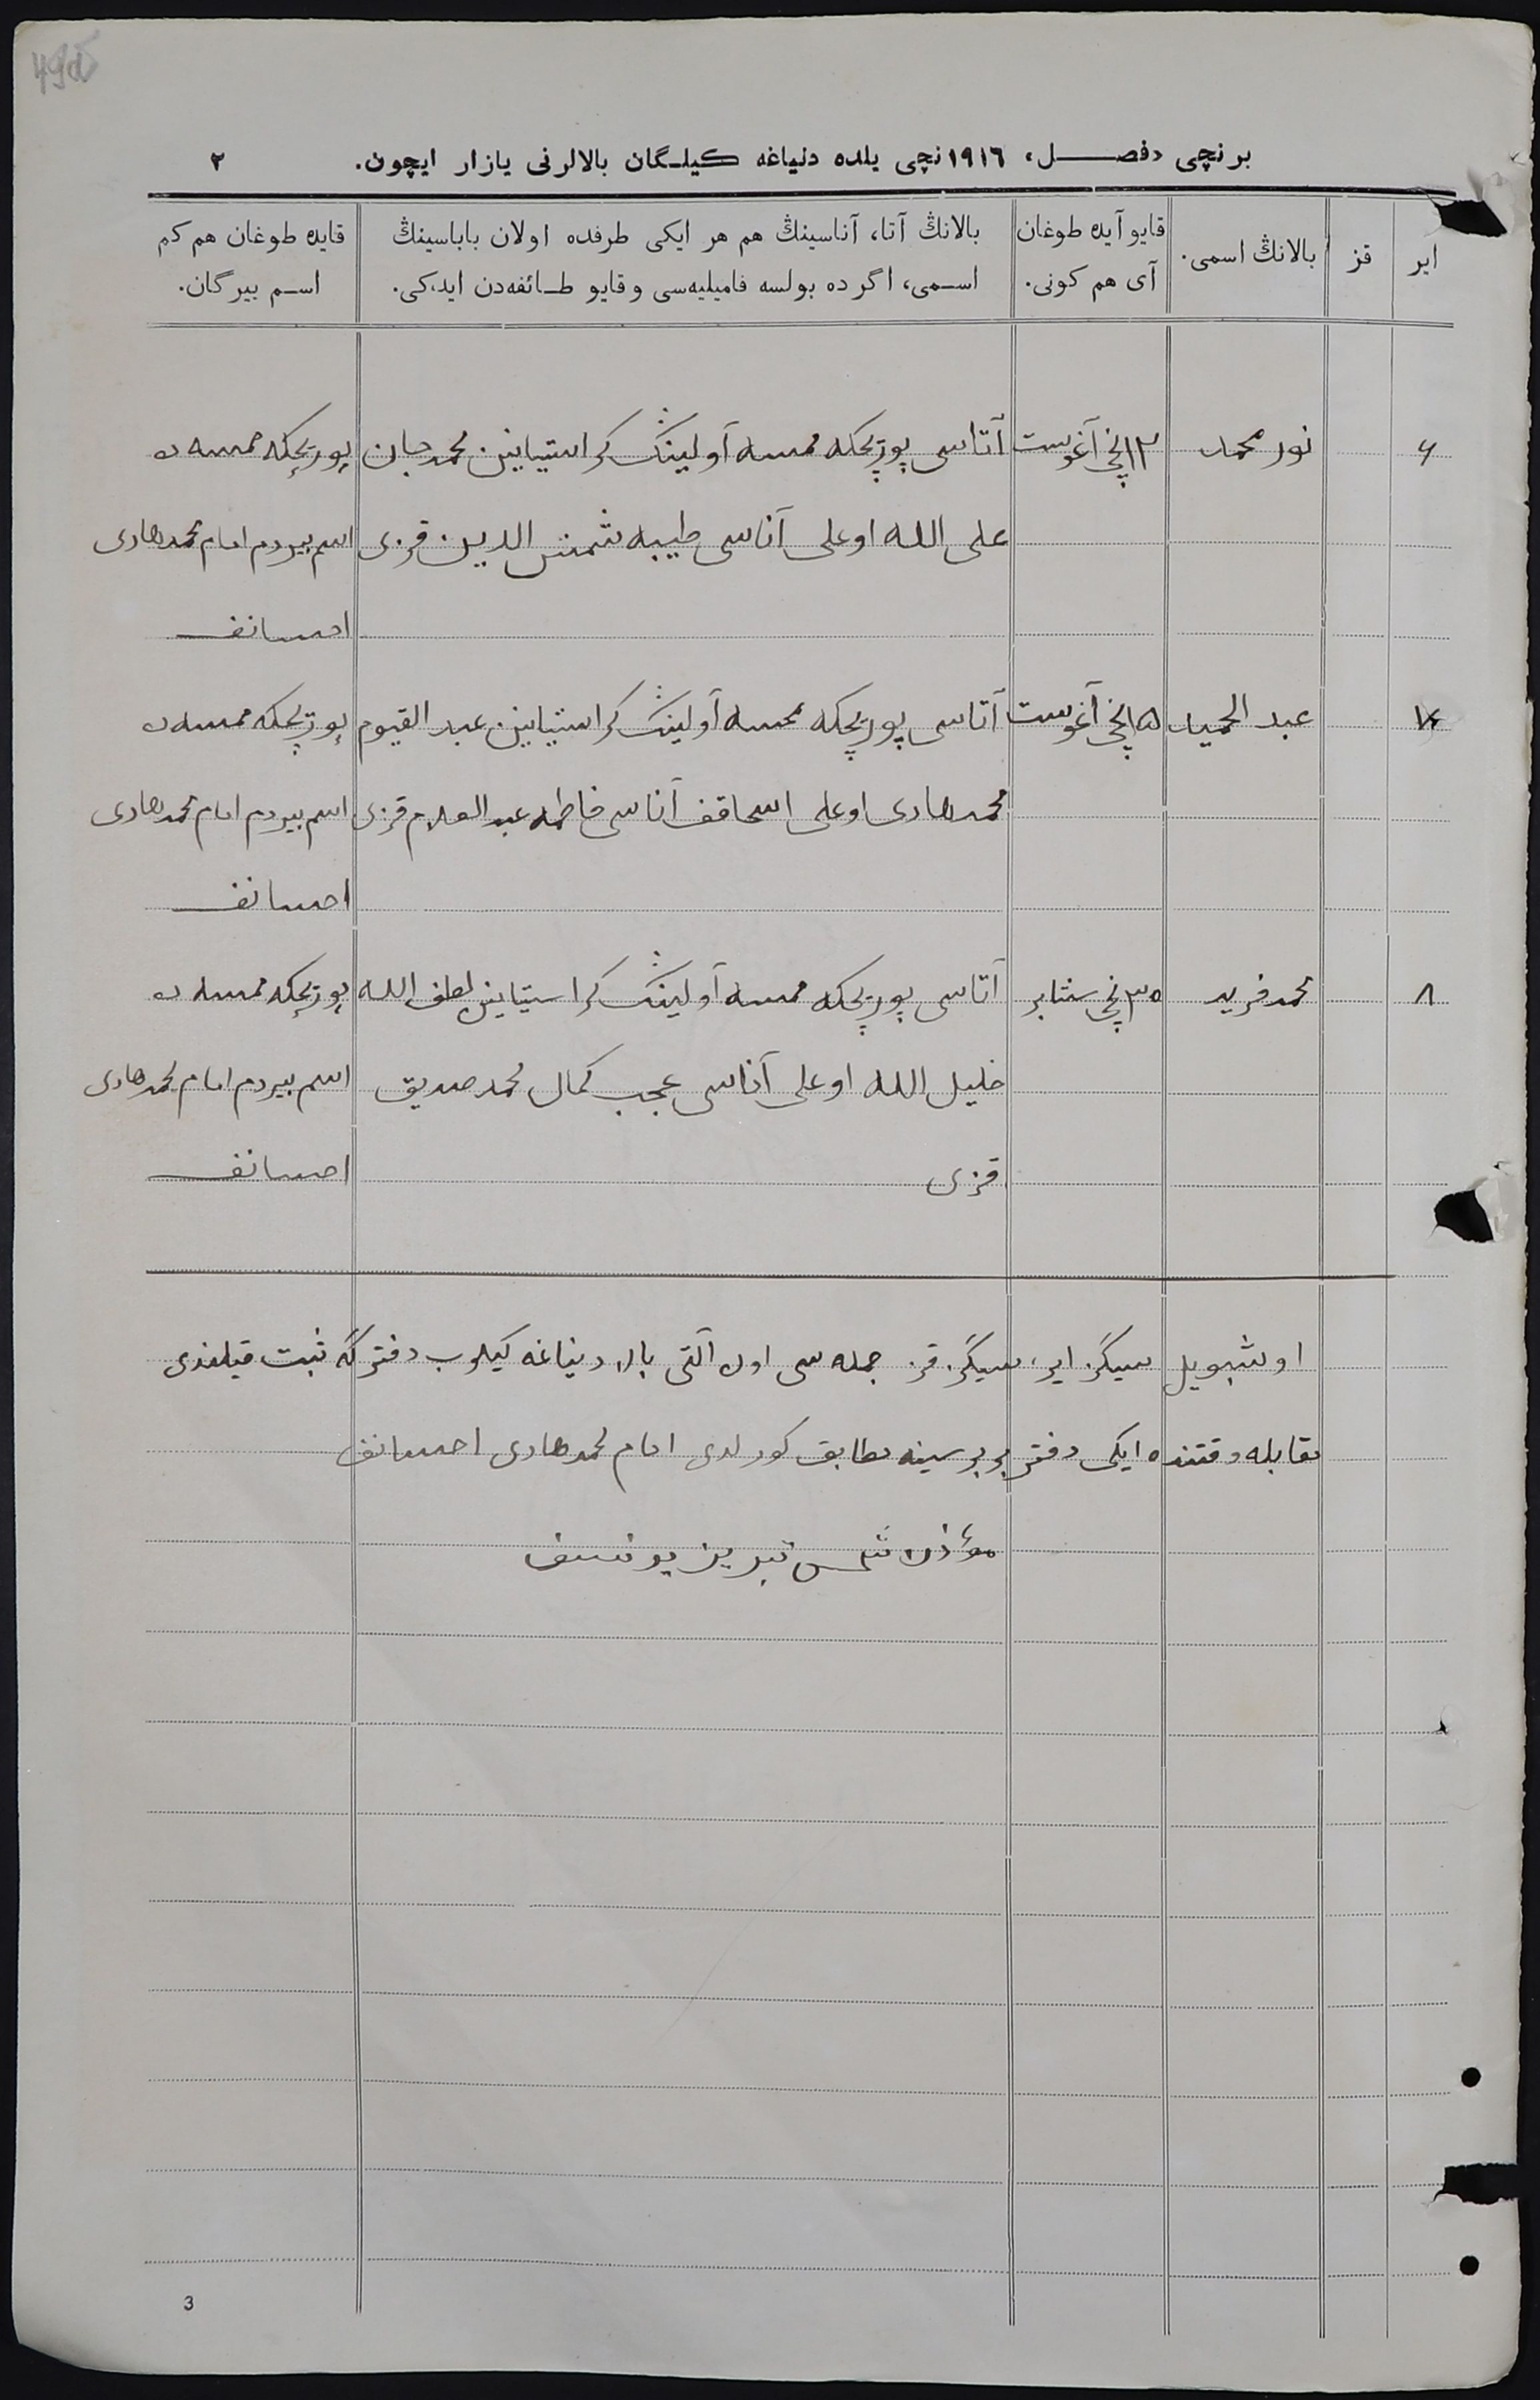 برنچی «فصل» ١٩١٦ نچی یلده دنیاغه کیلگان بالالرنی یازار ایچون. ٢
ایر
قز
بالانڭ اسمی.
قایو آیده طوغان
آی هم کونی.
بالانڭ آتا، آناسینڭ هم هر ایکی طرفده اولان باباسینڭ
اسمی، اگرده بولسه فامیلیه‌سی و قایو طائفه‌دن ایدکی.
قایده طوغان هم کم
اسم بیرگان.
٦ نور محمد ١٣نچی آغوست آتاسی آولینڭ کراستیانین محمدجان
علی الله اوغلی آناسی طیبه شمس الدین قزی اسم بیردم امام محمدهادی
احسانف
٧ عبد الحمید ١٥نچی آغوست آتاسی آولینڭ کراستیانین عبد القیوم
محمدهادی اوغلی اسحاقف آناسی فاطمه عبد السلام قزی اسم بیردم امام محمدهادی
احسانف
٨ محمد فرید سنتابر آتاسی آولینڭ کراستیانین لطف الله
خلیل الله اوغلی آناسی عجب کمال محمد صدیق اسم بیردم امام محمدهادی
قزی احسانف
اوشبویل سیگز ایر، سیگز قز جمله‌سی اون آلتی بالا دنیاغه کیلوب دفترگه ثبت قیلندی
مقابله وقتنده ایکی دفتر بر برسینه مطابق کورلدی امام محمدهادی احسانف
مؤذن شمس تبریز یونسف
3